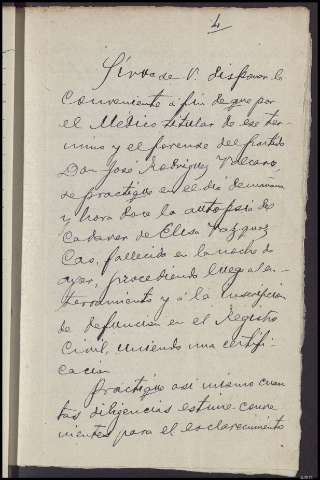 4
Sírvase V. disponer lo
conveniente á fin de que por
el Médico titular de ese tér-
mino y el forense del partido
Don José Rodríguez
se practique en el día de mañana
y hora doce la autopsia del
cadáver de Elisa Vazquez
Cao, fallecido en la noche de
ayer, procediendo luego al en-
terramiento y á la inscripción
de defunción en el Registro
Civil, uniendo una certifi-
cación
Practique asi mismo cuan
tas diligencias estime conve
nientes para el esclarecimiento